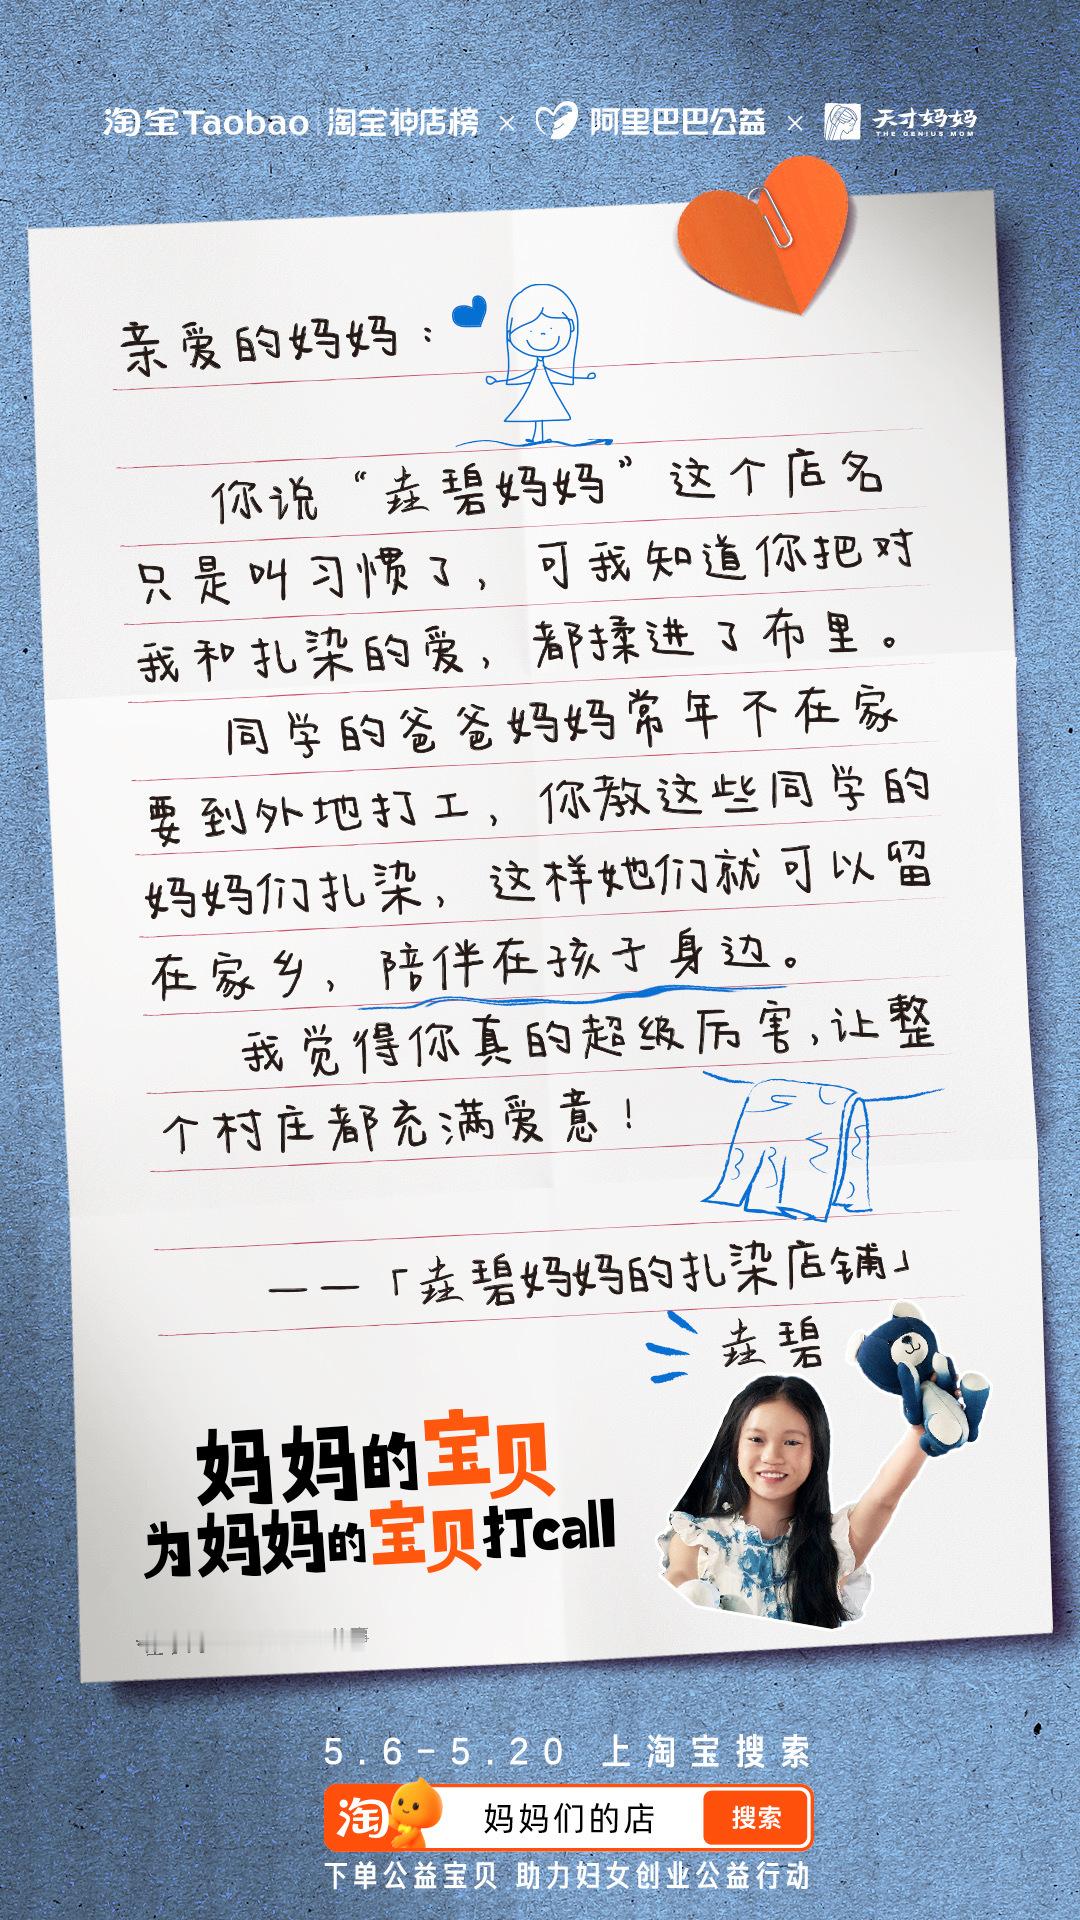 淘宝Taobao 淘宝神店榜 × 阿里巴巴公益 × 天才妈妈
THE GENIUS MOM
亲爱的妈妈：
你说“垚碧妈妈”这个店名
只是叫习惯了，可我知道你把对
我和扎染的爱，都揉进了布里。
同学的爸爸妈妈常年不在家
要到外地打工，你教这些同学的
妈妈们扎染，这样她们就可以留
在家乡，陪伴在孩子身边。
我觉得你真的超级厉害，让整
个村庄都充满爱意！
——「垚碧妈妈的扎染店铺」
垚碧
妈妈的宝贝
为妈妈的宝贝打call
5.6-5.20 上淘宝搜索
淘 妈妈们的店 搜索
下单公益宝贝 助力妇女创业公益行动